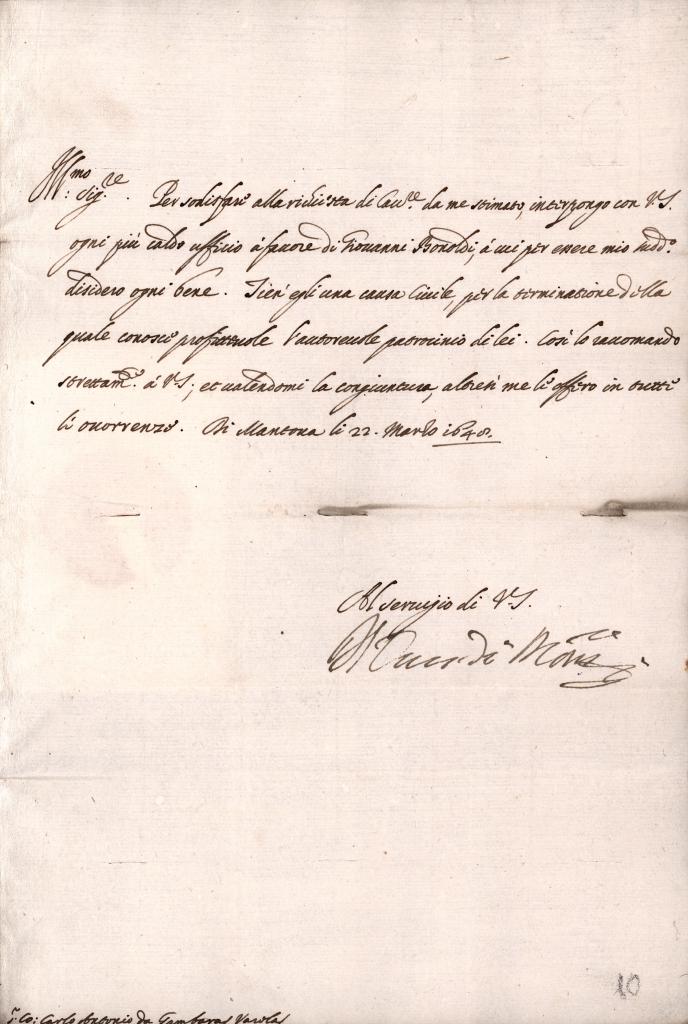 Ill.mo
Sig.re . Per sodisfare alla richiesta di Cau.re da me stimato, interpongo con V.S.
ogni più caldo ufficio à fauore di Giouanni Bonoldi, à cui per essere mio sudd.o
disidero ogni bene. Tien' egli una causa Ciuile, per la terminatione della
quale conosce profitteuole l'autoreuole patrocinio di lei. Così lo raccomando
strettam.te à V.S.; et ualendomi la congiuntura, altresì me li offero in tutte
le occorrenze. Di Mantoua li 22. Marzo 1648.
Al seruigio di V.S.
Il Duca di
Co: Carlo Antonio da Gambara
10